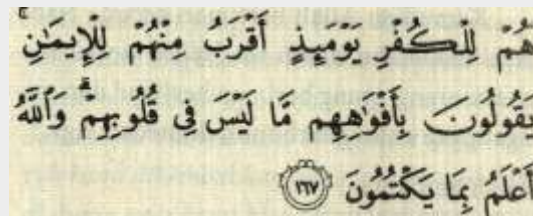 هُمْ لِلْكُفْرِ يَوْمَئِذٍ أَقْرَبُ مِنْهُمْ لِلْإِيمَٰنِ ۚ
يَقُولُونَ بِأَفْوَٰهِهِم مَّا لَيْسَ فِي قُلُوبِهِمْ ۗ وَٱللَّهُ
أَعْلَمُ بِمَا يَكْتُمُونَ ﴿١٦٧﴾